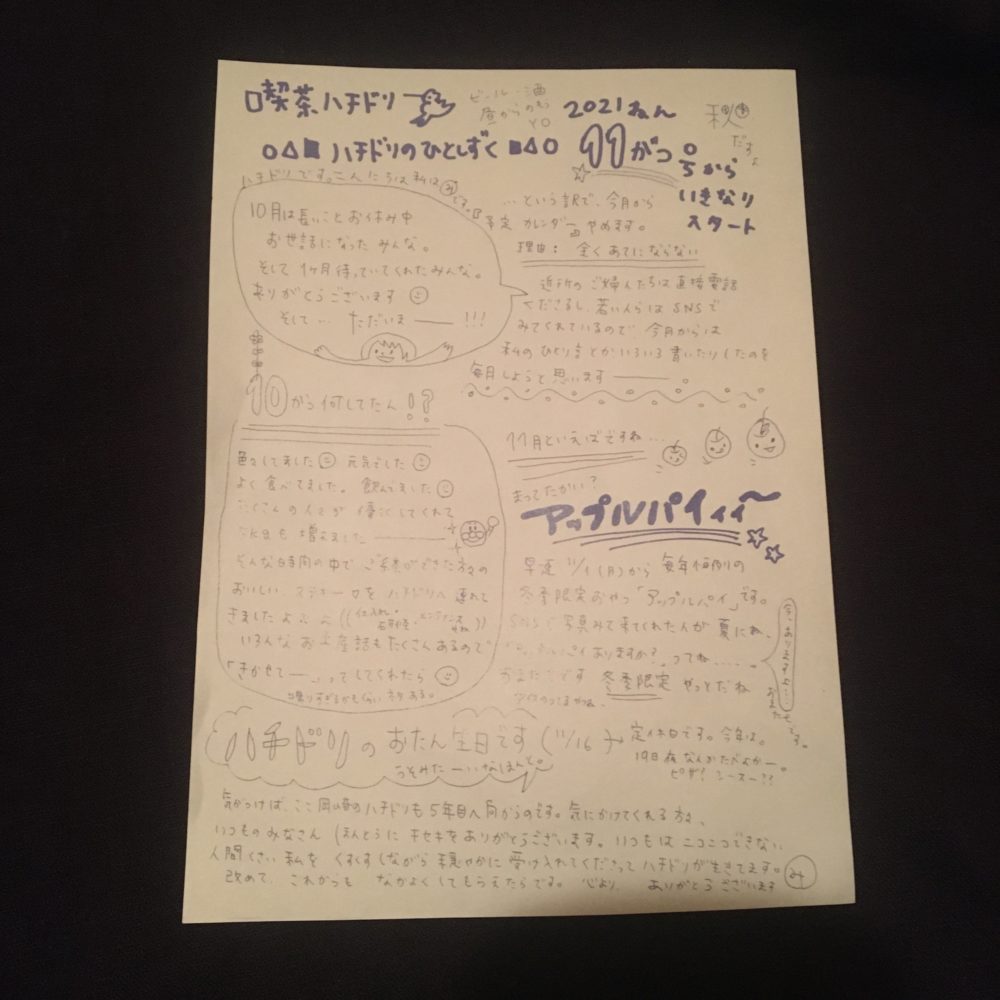 喫茶ハチドリ
ビール・酒
昼からのむ
2021ねん
秋
だすよ
○△■ ハチドリのひとしずく ■△○
11がつ号から
いきなり
スタート
ハチドリです。こんにちは私はみです。
10月は長いことお休み中
お世話になったみんな。
そして1ヶ月待っていてくれたみんな。
ありがとうございます
そして… ただいま――!!!
…という訳で、今月から
予定カレンダーやめます。
理由: 全くあてにならない
近所のご婦人たちは直接電話
くださるし、若い人らはSNSで
みてくれているので、今月からは
私のひとり言とかいろいろ書いたりしたのを
毎月しようと思います――
10がつ何してたん!?
色々してました 元気でした
よく食べてました。飲んでました
たくさんの人たちが優しくしてくれて
休日も増えました――
そんな時間の中でご縁ができた方々の
おいしい、ステキーをハチドリへ連れて
きましたよこん
いろんなお土産話もたくさんあるので
「きかせて――」ってしてくれたら
喋りすぎるかもくらいネタある。
11月といえばですね…
まってたかい?
アップルパイィィ〜
早速 11/1(月)から 毎年恒例の
冬季限定おやつ「アップルパイ」です。
SNSで写真みて来てくれた人が夏にね、
「アップルパイありますか?」ってね……。
おまたせです 冬季限定 やっとだね
今、ありますよ…
おまたせです。
ハチドリのおたん生日です(11/16)
うそみたーいなほんと。
定休日です。今年は。
19日夜なんかたべよかー。
ピザ! シースー??
気がつけば、ここ岡山のハチドリも5年目へ向かうのです。気にかけてくれる方、
いつものみなさん ほんとうにキセキをありがとうございます。いつもはニコニコできない
人間くさい私を くすくすしながら穏やかに受け入れてくださってハチドリが生きてます。
改めて、これからも なかよくしてもらえたらでる。心より、ありがとうございます
み